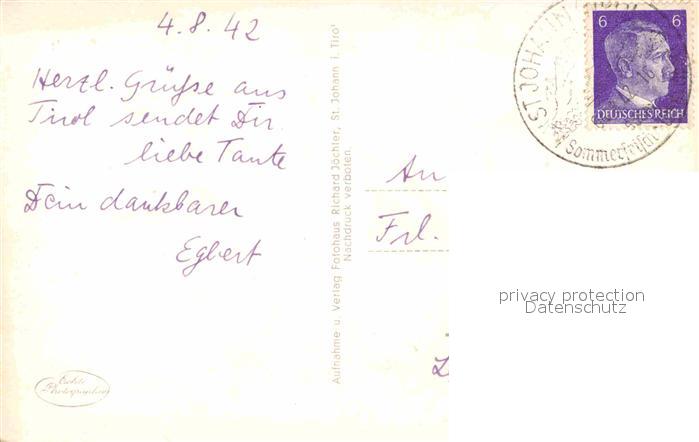 4.8.42
Herzl. Grüße aus
Tirol sendet Dir
liebe Tante
Dein dankbarer
Egbert
Echte
Photographie
Aufnahme u. Verlag Fotohaus Richard Jöchler, St. Johann i. Tirol
Nachdruck verboten.
ST. JOHANN
Sommerfrische
6 6
DEUTSCHES REICH
An
Frl.
privacy protection
Datenschutz